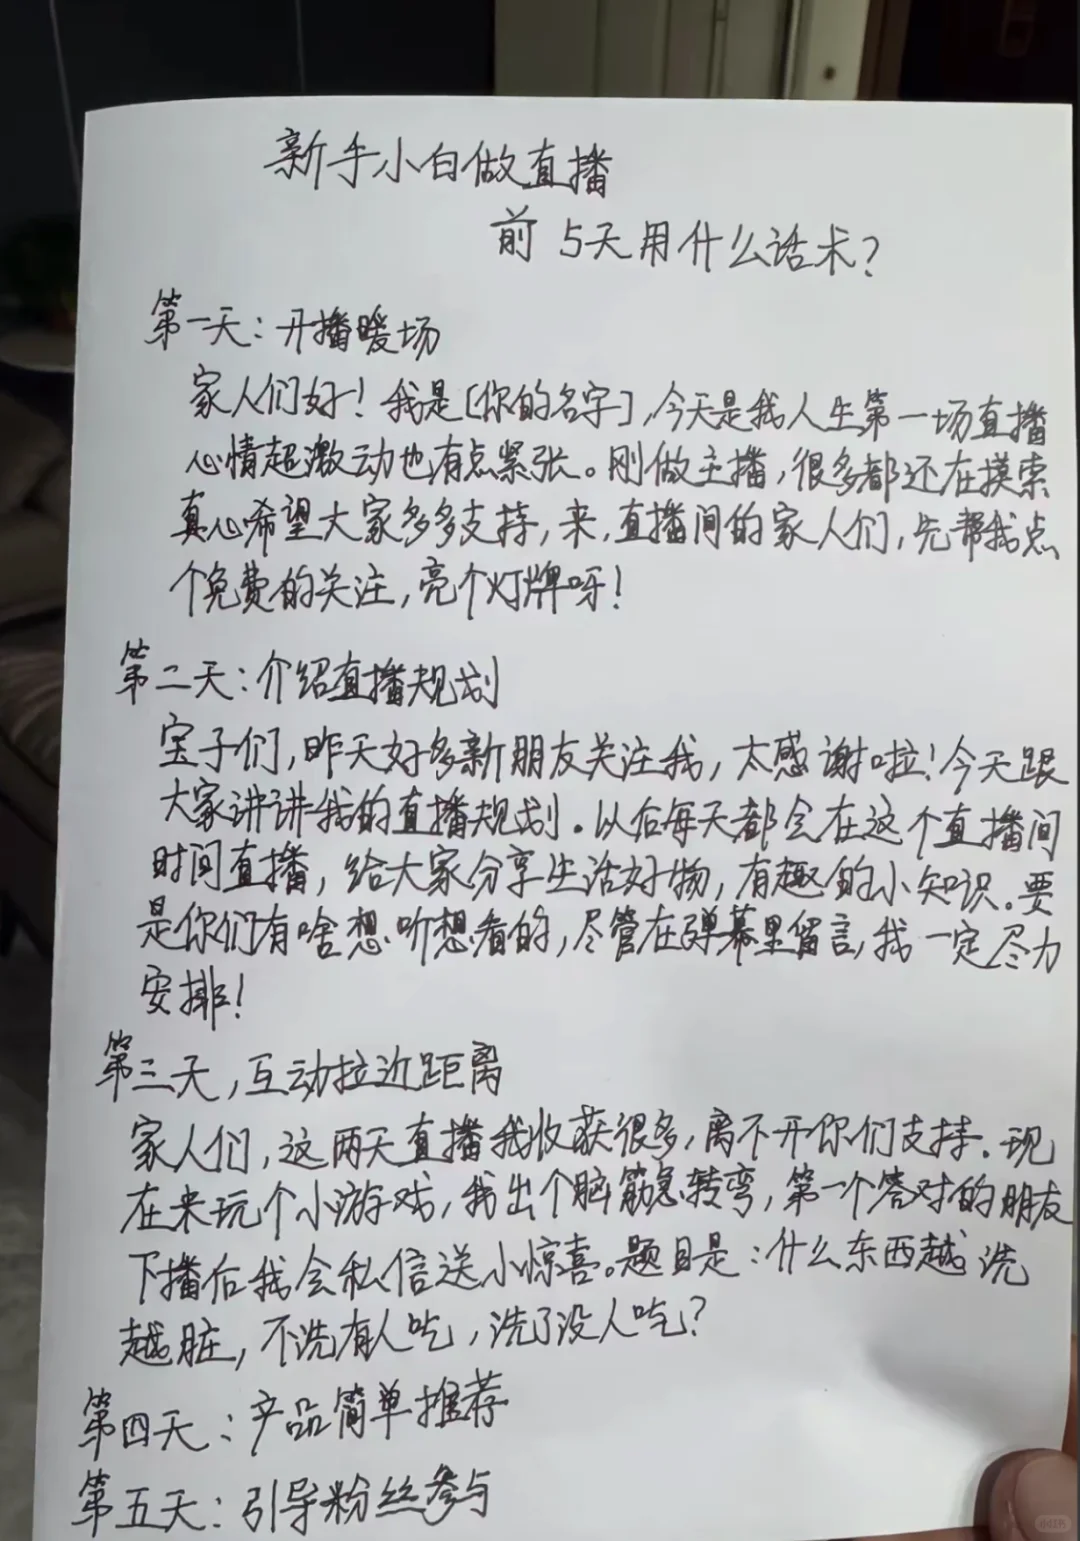 新手小白做直播
前5天用什么话术?
第一天:开播暖场
家人们好!我是[你的名字],今天是我人生第一场直播
心情超激动也有点紧张。刚做主播,很多都还在摸索
真心希望大家多多支持,来,直播间的家人们,先帮我点
个免费的关注,亮个灯牌呀!
第二天:介绍直播规划
宝子们,昨天好多新朋友关注我,太感谢啦!今天跟
大家讲讲我的直播规划。以后每天都会在这个直播间
时间直播,给大家分享生活好物,有趣的小知识。要
是你们有啥想听想看的,尽管在弹幕里留言,我一定尽力
安排!
第三天,互动拉近距离
家人们,这两天直播我收获很多,离不开你们支持.现
在来玩个小游戏,我出个脑筋急转弯,第一个答对的朋友
下播后我会私信送小惊喜。题目是:什么东西越洗
越脏,不洗有人吃,洗了没人吃?
第四天:产品简单推荐
第五天:引导粉丝参与